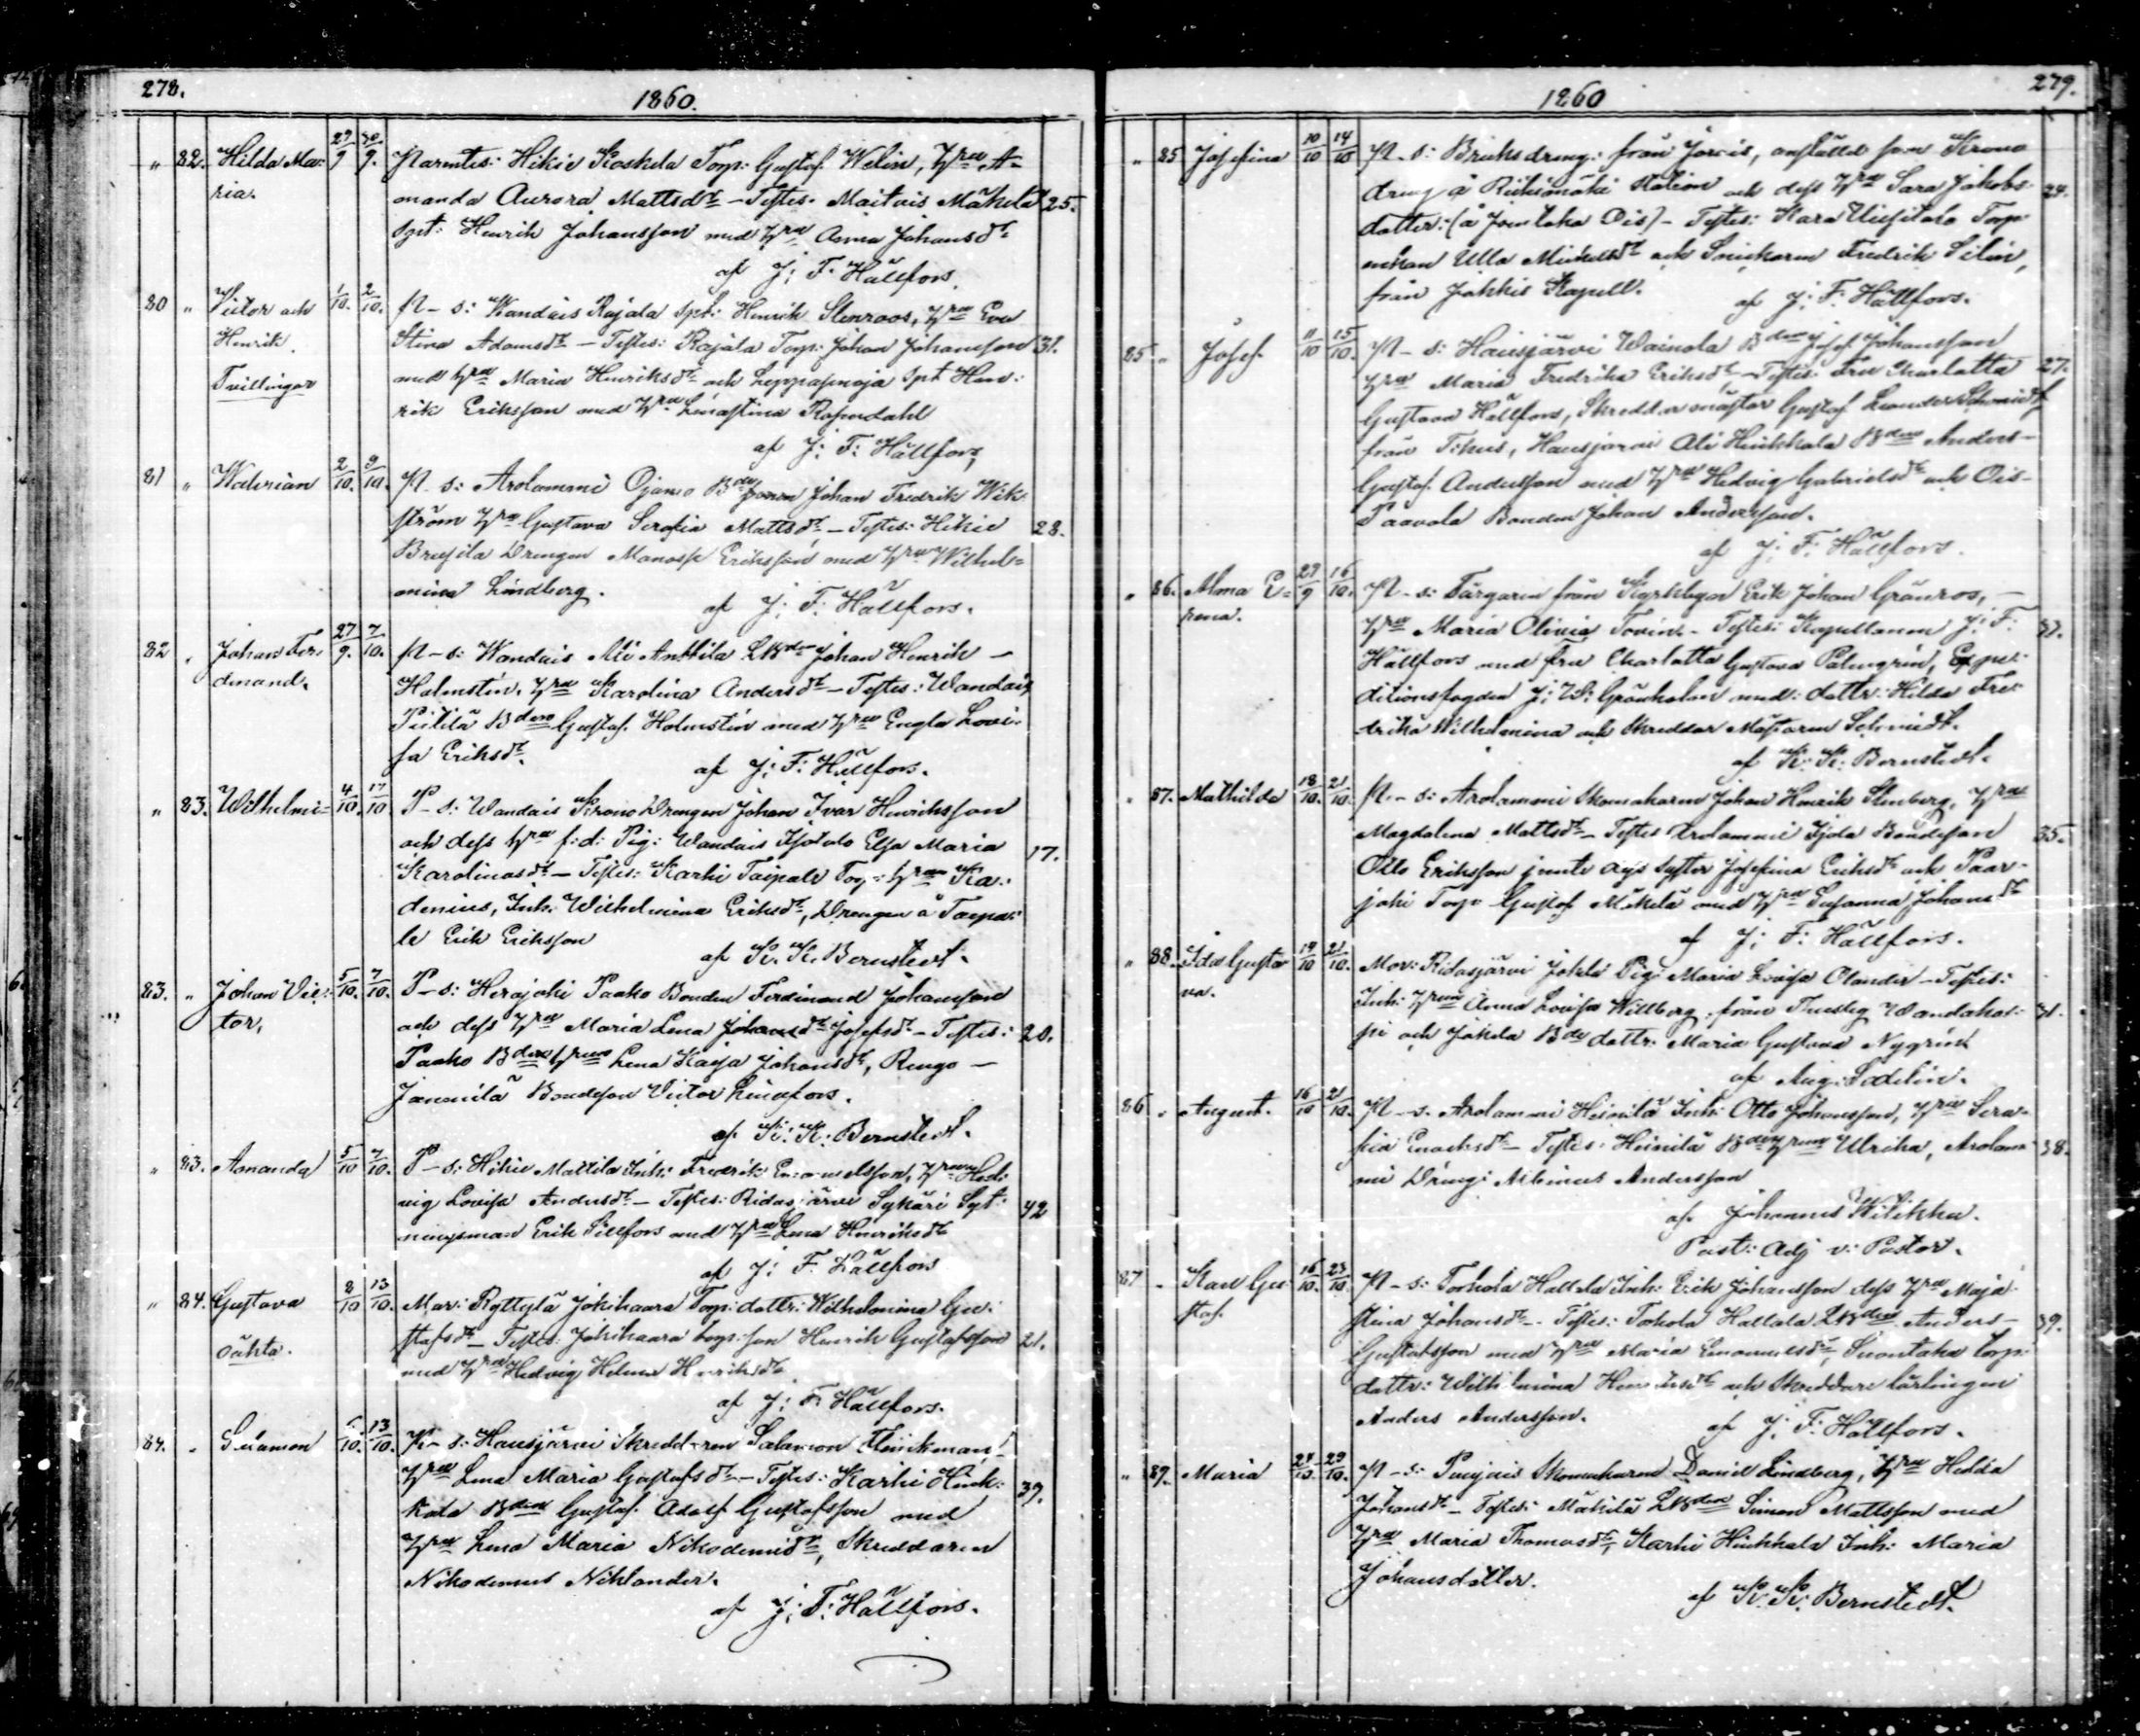 278.
1860.
" 82. Hilda Ma= 29/9 30/9. Parentes: Hikiä Koskela Torp: Gustaf Welin, hru A=
ria. manda Aurora Mattsdr – Testes: Maitois Mäkelä 25.
Spt: Henrik Johansson med hru Anna Johansdr
af J: F: Hällfors.
80 " Victor och 1/10. 2/10. P – s: Wandais Rajala Spt: Henrik Stenroos, hru Eva
Henrik. Stina Adamsdr – Testes: Rajala Torp: Johan Johansson 31.
Tvillingar med hru Maria Henriksdr och Leppäsmaja Spt Hen:
rik Eriksson med hru Lenastina Rosendahl
af J: F: Hällfors,
81 " Walerian 2/10. 9/10. P – s: Arolammi Ojanco Bdesonen Johan Fredrik Wik
ström hru Gustava Serafia Mattsdr – Testes: Hikie 28.
Drengen Manasse Eriksson med hru Wilhel=
mina Lindberg.
af J: F: Hällfors.
82 " Johan Fer: 27/9. 7/10. P – s: Wandais Ali Anttila LBden Johan Henrik –
dinand. Holmstén, hru Karolina Andersdr – Testes: Wandais
Piitilä Bden Gustaf Holmstén med hru Engla Lovi:
sa Eriksdr.
af J: F: Hällfors.
" 83. Wilhelmi= 4/10. 17/10 P – s: Wandais Krono Drengen Johan Ivar Henriksson
och dess hru f: d: Pig: Wandais Elsa Maria 17.
Karolinasdr – Testes: Karhi Taipale Torp: hrun Ka:
denius, Inh: Wilhelmina Eriksdr, Drengen å Taipa:
le Erik Eriksson
af K. K. Bernstedt.
83. " Johan Vic: 5/10. 7/10. P – s: Herajoki Paako Bonden Ferdinand Johansson
tor, och dess hru Maria Lena Johansdr Josefsdr – Testes: 20.
Paako Bdens hrun Lena Kaisa Johansdr, Rengo –
Janmilä Bondeson Victor Linnfors.
af K: K: Bernstedt.
" 83. Amanda 5/10 7/10. P – s: Hikie Mattila Inh: Fredrik Emanuelsson, hrun Hed:
vig Lovisa Andersdr – Testes: Ridasjärvi Sykäri Syt: 42
ningsman Erik Sillfors med hru Lena Henriksdr
af J: F. Hällfors
" 84. Gustava 8/10 13/10. Mor: Ryttylä Jokihaara Torp: dottr: Wilhelmina Gu:
oäkta. stafsdr – Testes: Jokihaara torp: son Henrik Gustafsson 21.
med hru Hedvig Helena Henriksdr
af J: F: Hällfors.
84. " Salamon /10. 13/10. P – s: Hausjärvi Skreddaren Salamon Flinckman,
hru Lena Maria Gustafsdr – Testes: Karhi Hink: 39.
kala Bden Gustaf Adolf Gustafsson med
hru Lena Maria Nikodemidr, Skreddaren
Nikodemus Niklander.
af J: F: Hällfors.
279.
1860
" 85 Josefina 10/10 14/10 P – s: Bruksdreng: från Jorois, anställd som Krono
dreng å Riihimäki Station och dess hru Sara Jakobs 24.
dotter: (å Joentaka Ois) – Testes: Kara Uusitalo Torp
enkan Ulla Michelsdr och Snickaren Fredrik Silin,
från Jokkis Kapell.
af J: F: Hällfors.
85. " Josef. 11/10 15/10. P – s: Hausjärvi Wainola Bden Josef Johansson
hru Maria Fredrika Eriksdr – Testes: Fru Charlotta 27.
Gustava Hällfors, Skreddaremästar Gustaf Leander Schmidt
från T:hus, Hausjärvi Ali Hinkkala Bden Anders
Gustaf Andersson med hru Hedvig Gabrielsdr och Ois
Paavola Bonden Johan Andersson.
af J: F: Hällfors.
" 86. Alma E= 29/9 16/10. P – s: Färgaren från Kyrkbyn Erik Johan Grönros, –
rena. hru Maria Olivia Tovén. – Testes: Kapellanen J: F: 33.
Hällfors med fru Charlotta Gustava Palmgrén, Expe:
ditionsfogden J: W: Grönholm med: dottr: Hilda Fre:
drika Wilhelmina och Skreddar Mästaren Schmidt.
af K: K: Bernstedt.
" 87. Mathilda 18/10. 21/10. P. – s: Arolammi Skomakaren Johan Henrik Stenberg, hru
Magdalena Mattsdr – Testes Arolammi Bondeson 35.
Otto Eriksson jemte dess syster Josefina Eriksdr och Paar:
joki Torp: Gustaf Mikkelä med hru Susanna Johansdr
af J: F: Hällfors.
" 88. Ida Gusta 14/10 21/10. Mor: Ridasjärvi Jokela Pig: Maria Lovisa Olander – Testes:
va. Inh: hrun Anna Lovisa Willberg från Tusby Wandakos: 31.
ki och Jokela Bde dottr: Maria Gustava Nygrén
af Aug: Sadelin.
86. " August. 16/10 21/10. P – s. Arolammi Heinilä Inh: Otto Johansson, hru Sera
fia Enocksdr – Testes: Heinilä Bdens hrun Ulrika, Arolam 38.
mi Dreng: Albinus Andersson
af Johannes Wilikka.
Past: Adj v: Pastor.
87 " Karl Gu 16/10. 23/10. P – s: Torhola Hallala Inh: Erik Johansson dess hru Maja
staf. Stina Johansdr – Testes: Torhola Hallala LBden Anders – 39.
Gustafsson med hru Maria Emanuelsdr, Suontaka torp:
dottr: Wilhelmina Henriksdr och Skreddare lärlingen
Anders Andersson.
af J: F: Hällfors.
" 89. Maria 24/10. 29/10. P – s: Punjois Skomakaren Daniel Lindberg, hru Hedda
Johansdr – Testes: Mäkilä LBden Simon Mattsson med
hru Maria Thomasdr, Karhi Hinkkala Inh: Maria
Johansdotter.
af K. K: Bernstedt.